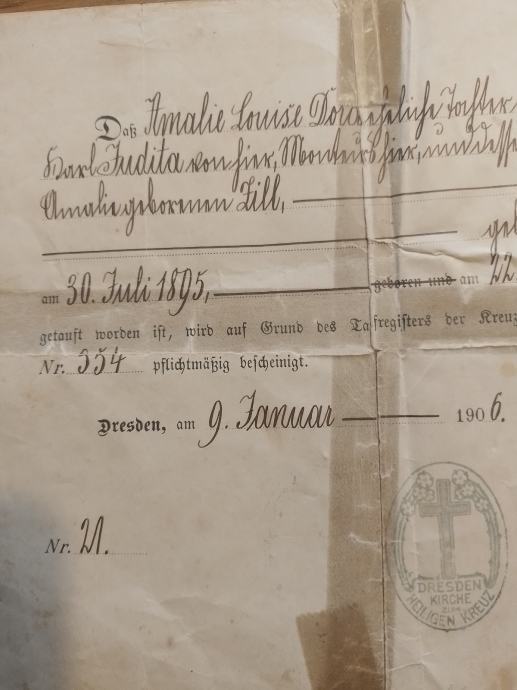 Daß Amalie Louise Dora eheliche Tochter
Karl Judita von hier, Monteurs hier, und dessen
Amalie geborenen Zill,
gel
am 30. Juli 1895, geboren und am 22
getauft worden ist, wird auf Grund des Taufregisters der Kreuz
Nr. 554 pflichtmäßig bescheinigt.
Dresden, am 9. Januar 1906.
Nr. 21.
DRESDEN
KIRCHE
ZUM
HEILIGEN KREUZ